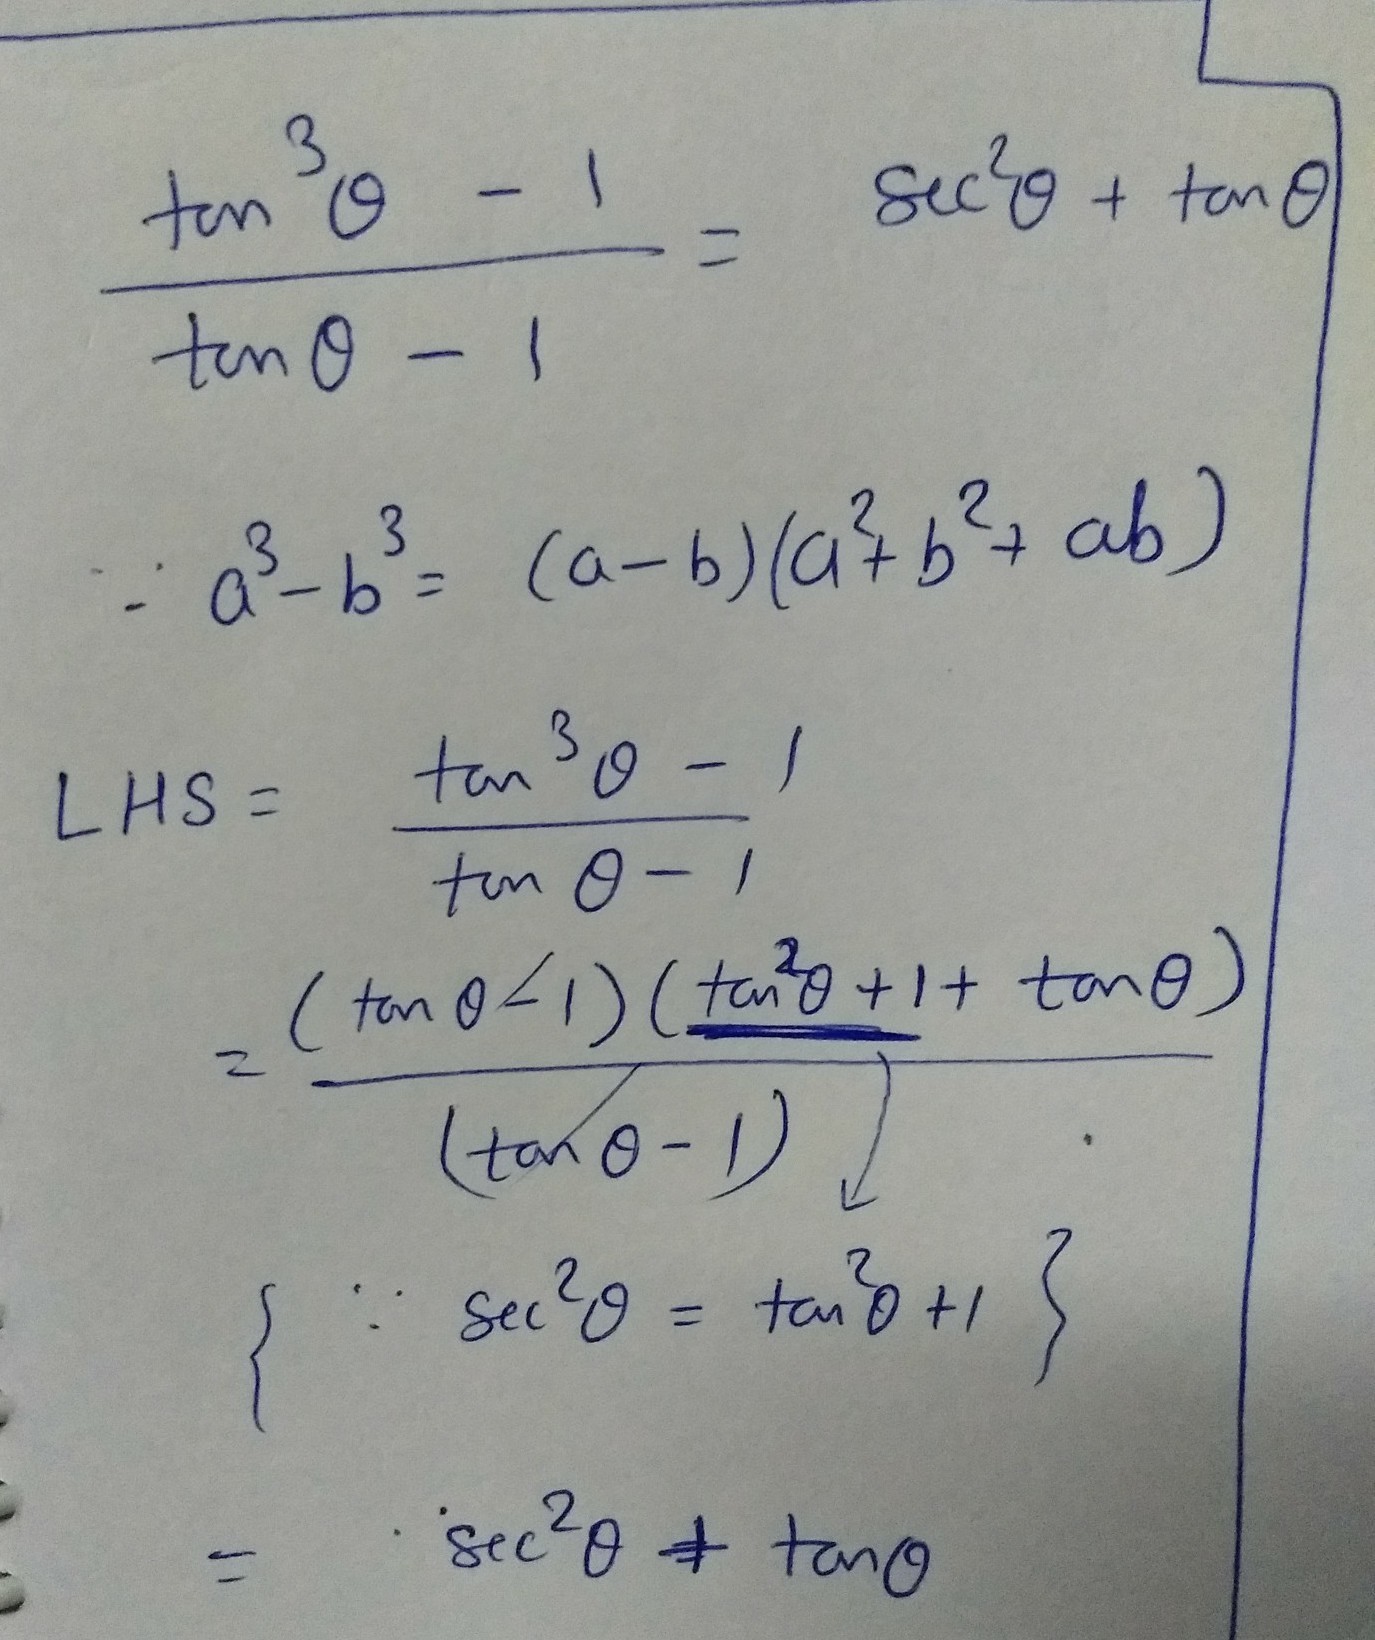 tan³θ - 1 / tanθ - 1 = sec²θ + tanθ
∵ a³ - b³ = (a-b)(a²+b²+ab)
LHS = tan³θ - 1 / tanθ - 1
= (tanθ - 1)(tan²θ + 1 + tanθ) / (tanθ - 1)
{ ∵ sec²θ = tan²θ + 1 }
= sec²θ + tanθ